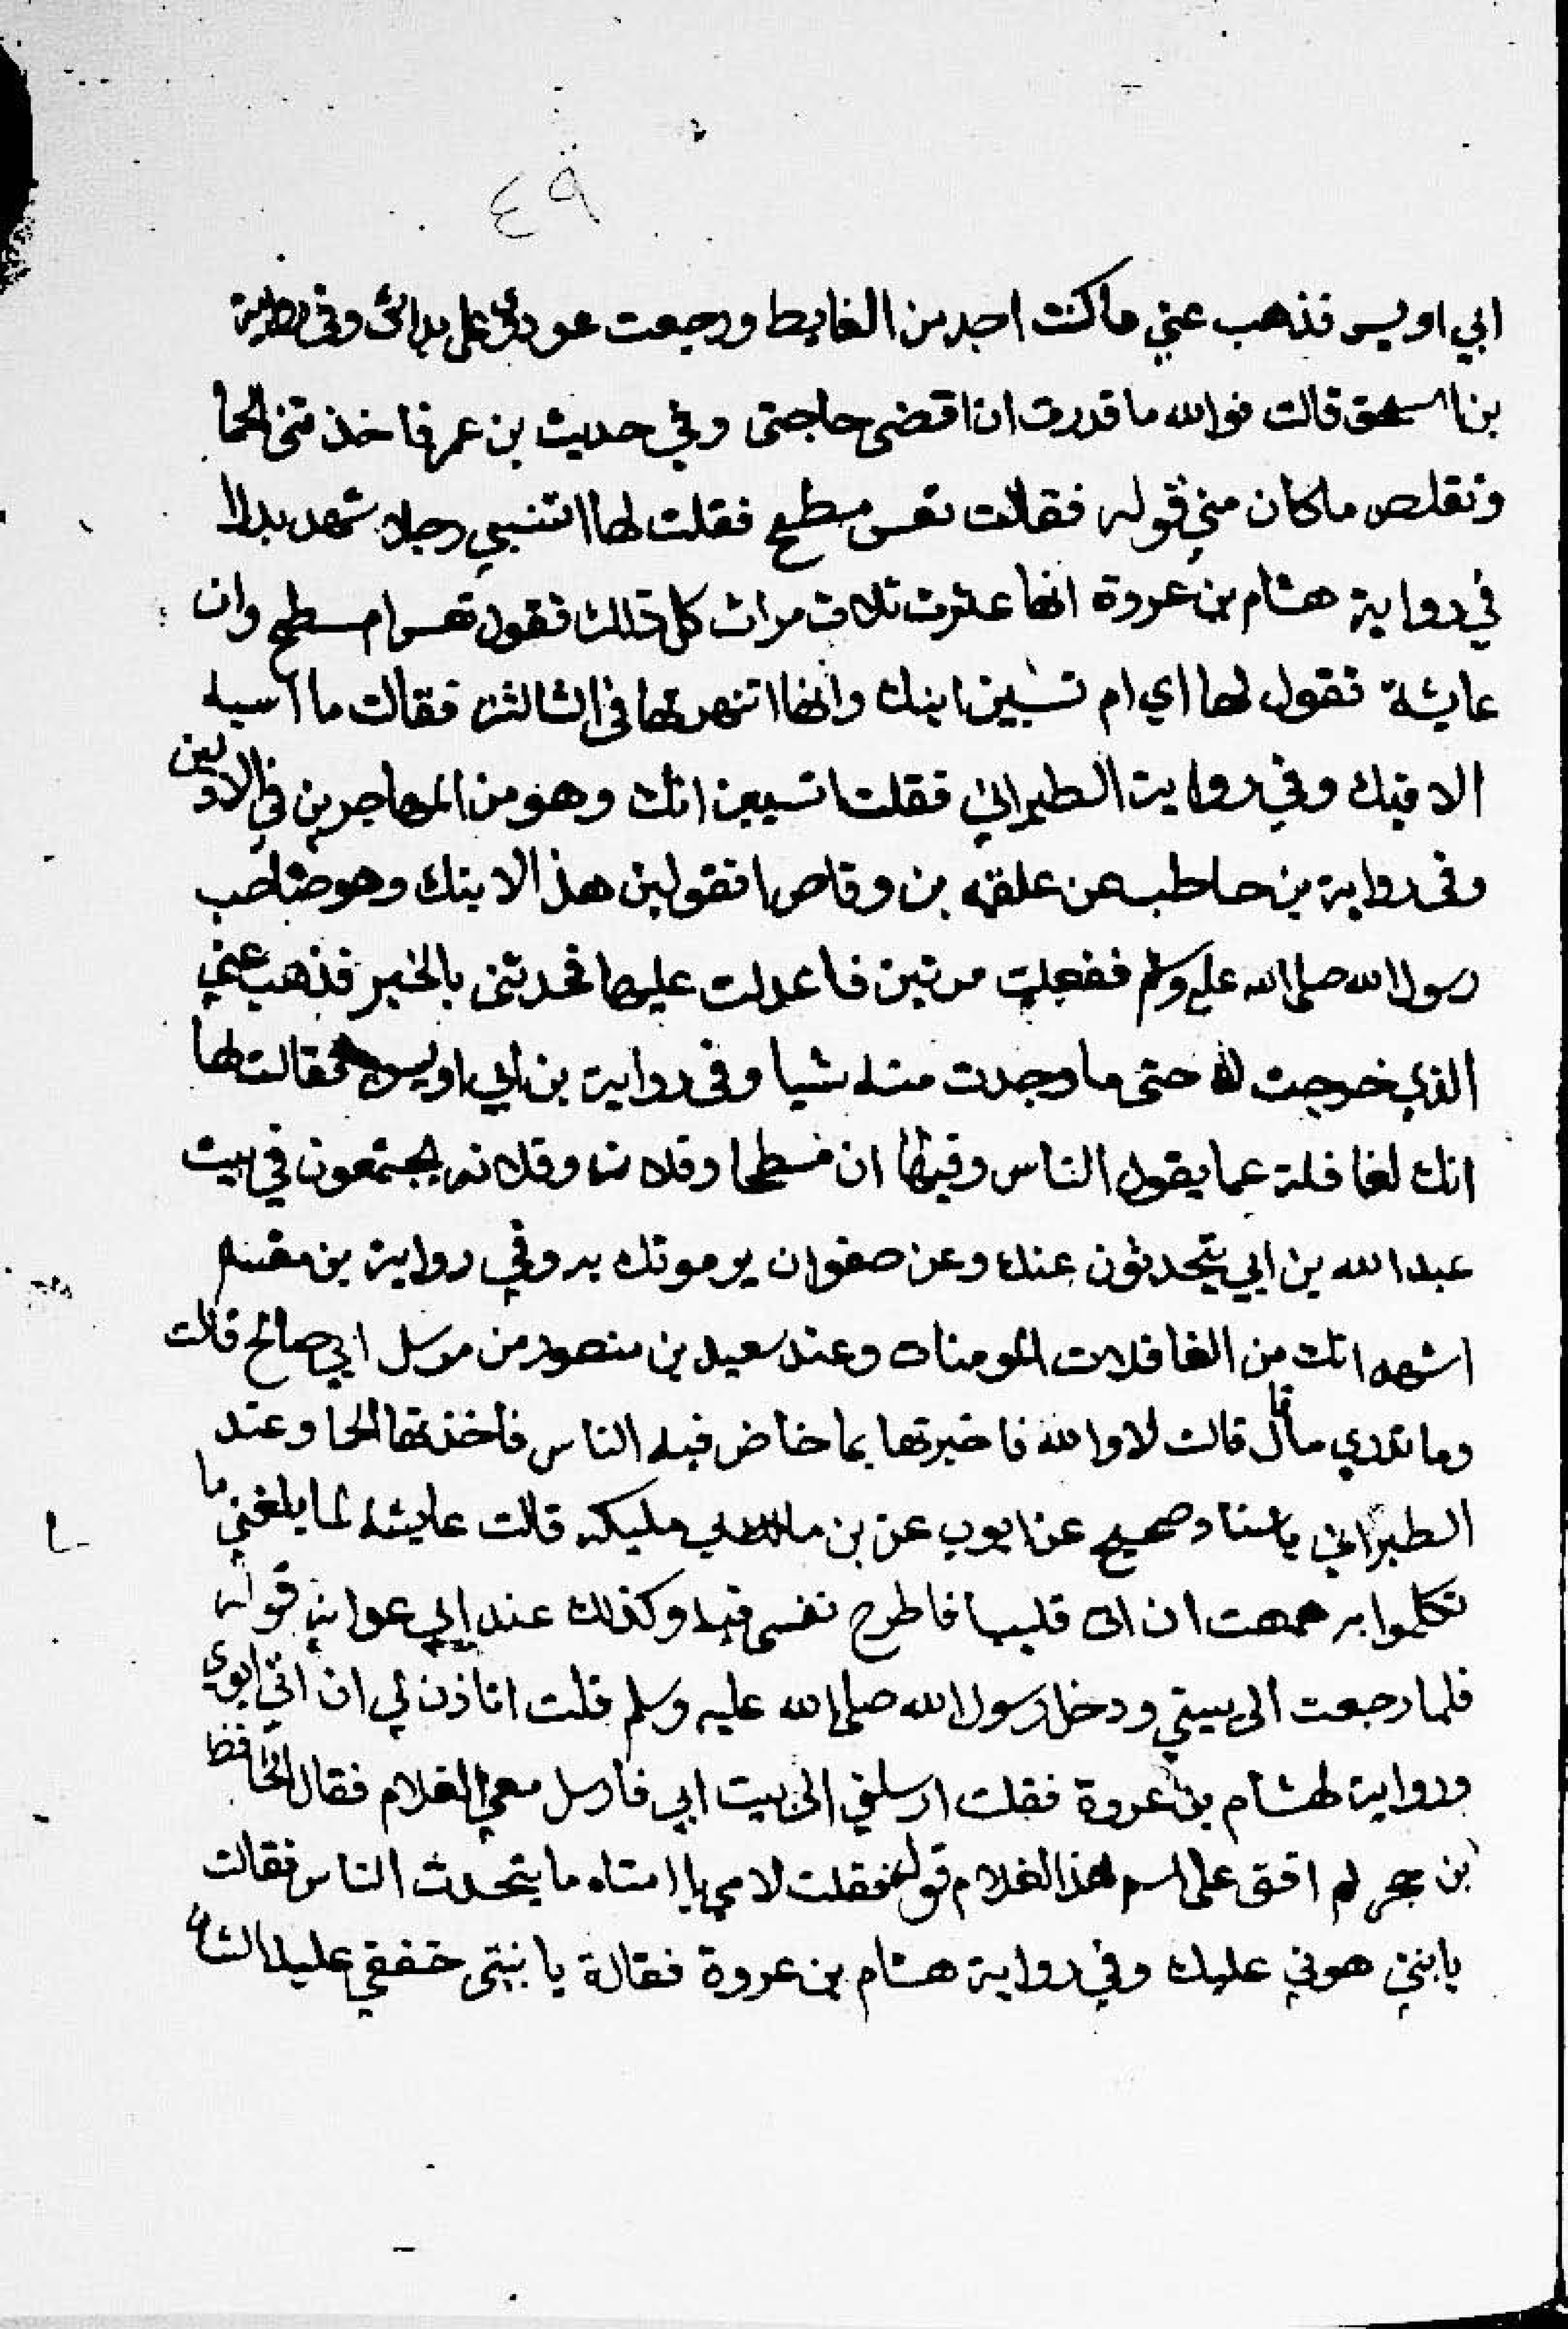 ٤٩
ابي اويس فذهب عني ما كنت اجد من الغايط ورجعت عودي على بدائي وفي رواية
بن اسحق قالت فوالله ما قدرت ان اقضي حاجتي وفي حديث بن عمر فاخذتني الحما
وتقلص ما كان مني قوله فقالت تعس مسطح فقلت لها اتسبي رجلا شهد بدرا
في رواية هشام بن عروة انها عثرت ثلاث مرات كل ذلك تقول تعس ام مسطح وان
عايشة تقول لها اي ام تسبين ابنك وانها انتهرتها في الثالثة فقالت ما اسبه
الا فيك وفي رواية الطبراني فقلت اتسبين ابنك وهو من المهاجرين في الاولين
وفي رواية بن حاطب عن علقمه بن وقاص اتقولين هذا لابنك وهو صاحب
رسول الله صلى الله عليه وسلم ففعلت مرتين فاعدلت عليها فحدثتني بالخبر فذهب عني
الذي خرجت له حتى ما وجدت منه شيا وفي رواية بن ابي اويس فقالت لها
انك لغافلة عما يقول الناس وفيها ان مسطحا وفلانه وفلانه يجتمعون في بيت
عبد الله بن ابي يتحدثون عنك وعن صفوان يرمونك به وفي رواية بن مقسم
اشهد انك من الغافلات المومنات وعند سعيد بن منصور من مرسل ابي صالح قالت
وما تدري ما قال قالت لا والله فاخبرتها بما خاض فيه الناس فاخذتها الحما وعند
الطبراني باسناد صحيح عن ايوب عن بن ابي مليكه قالت عايشه لما بلغني ما
تكلموا به هممت ان اتى قليبا فاطرح نفسي فيه وكذلك عند ابي عوانه قوله
فلما رجعت الى بيتي ودخل رسول الله صلى الله عليه وسلم قلت اتاذن لي ان اتي ابوي
ورواية لهشام بن عروة فقلت ارسلني الى بيت ابي فارسل معي الغلام فقال الحافظ
بن حجر لم اقف على اسم هذا الغلام قوله فقلت لامي يا امتاه ما يتحدث الناس فقالت
يا بني هوني عليك وفي رواية هشام بن عروة فقالة يا بنيتي خففي عليك الشان